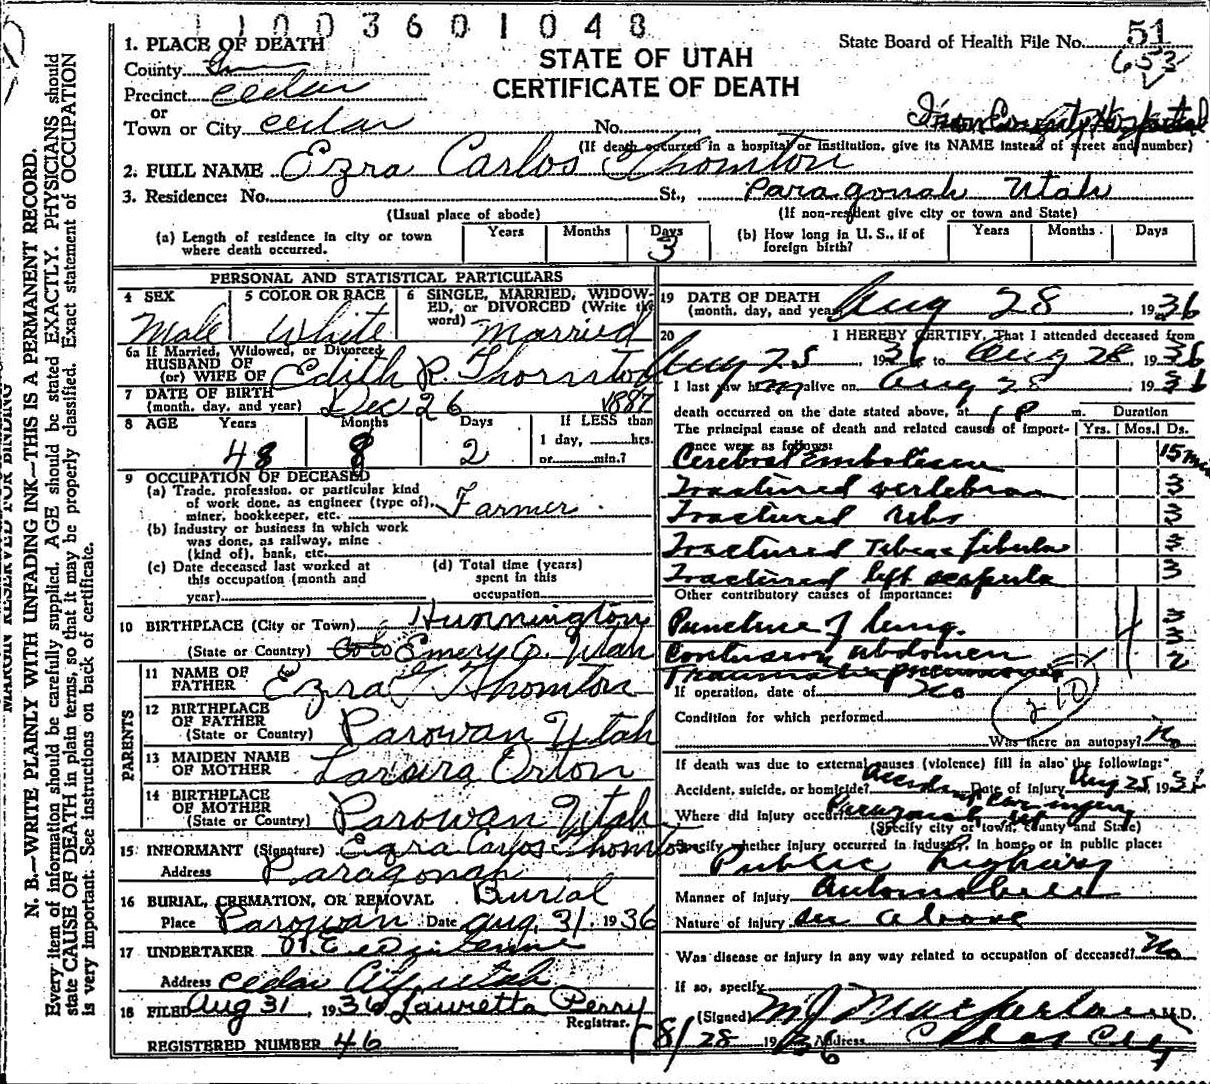 11003601048
State Board of Health File No. 51
653
STATE OF UTAH
CERTIFICATE OF DEATH
1. PLACE OF DEATH
County
Precinct Cedar
or
Town or City Cedar No. , Iron County Hospital
(If death occurred in a hospital or institution, give its NAME instead of street and number)
2. FULL NAME Ezra Carlos Thornton
3. Residence: No. St., Paragonah Utah
(Usual place of abode) (If non-resident give city or town and State)
(a) Length of residence in city or town where death occurred. Years Months Days 3
(b) How long in U. S., if of foreign birth? Years Months Days
PERSONAL AND STATISTICAL PARTICULARS
4 SEX Male
5 COLOR OR RACE White
6 SINGLE, MARRIED, WIDOW-
ED, or DIVORCED (Write the
word) Married
6a If Married, Widowed, or Divorced
HUSBAND OF
(or) WIFE OF Edith P. Thornton
7 DATE OF BIRTH
(month, day, and year) Dec 26 1887
8 AGE Years 48 Months 8 Days 2
If LESS than
1 day, hrs.
or min.?
9 OCCUPATION OF DECEASED
(a) Trade, profession, or particular kind
of work done, as engineer (type of),
miner, bookkeeper, etc. Farmer
(b) Industry or business in which work
was done, as railway, mine
(kind of), bank, etc.
(c) Date deceased last worked at
this occupation (month and
year)
(d) Total time (years)
spent in this
occupation
10 BIRTHPLACE (City or Town) Hunnington
(State or Country) Emery Co. Utah
PARENTS
11 NAME OF
FATHER Ezra T Thornton
12 BIRTHPLACE
OF FATHER
(State or Country) Parowan Utah
13 MAIDEN NAME
OF MOTHER Orton
14 BIRTHPLACE
OF MOTHER
(State or Country) Parowan Utah
15 INFORMANT (Signature) Ezra Carlos Thornton
Address Paragonah
16 BURIAL, CREMATION, OR REMOVAL Burial
Place Parowan Date Aug. 31, 1936
17 UNDERTAKER
Address Cedar City Utah
18 FILED Aug 31, 1936 Lauretta Perry
Registrar.
REGISTERED NUMBER 46
19 DATE OF DEATH
(month, day, and year) Aug 28, 1936
20 I HEREBY CERTIFY, That I attended deceased from
Aug 25, 1936 to Aug 28, 1936
I last saw him alive on Aug 28 1936
death occurred on the date stated above, at 1 P m.
The principal cause of death and related causes of import-
ance were as follows:
Duration
Yrs. Mos. Ds.
Cerebral Embolism 15 min
Fractured vertebrae 3
Fractured ribs 3
Fractured Tibia fibula 3
Fractured left scapula 3
Other contributory causes of importance:
Puncture of lung. 3
Contusion abdomen 3
Traumatic pneumonia 2
If operation, date of No
210
Condition for which performed
Was there an autopsy? No
If death was due to external causes (violence) fill in also the following:
Accident, suicide, or homicide? Accident Date of injury Aug 25, 1936
car injury
Where did injury occur? Paragonah Ut
(Specify city or town, county and State)
Specify whether injury occurred in industry, in home, or in public place:
Public highway
Manner of injury Automobile
Nature of injury see above
Was disease or injury in any way related to occupation of deceased? No
If so, specify
(Signed) M J Macfarlane M.D.
8/28 1936 Address Cedar City
MARGIN RESERVED FOR BINDING
N. B.—WRITE PLAINLY WITH UNFADING INK—THIS IS A PERMANENT RECORD.
Every item of information should be carefully supplied. AGE should be stated EXACTLY. PHYSICIANS should
state CAUSE OF DEATH in plain terms, so that it may be properly classified. Exact statement of OCCUPATION
is very important. See instructions on back of certificate.